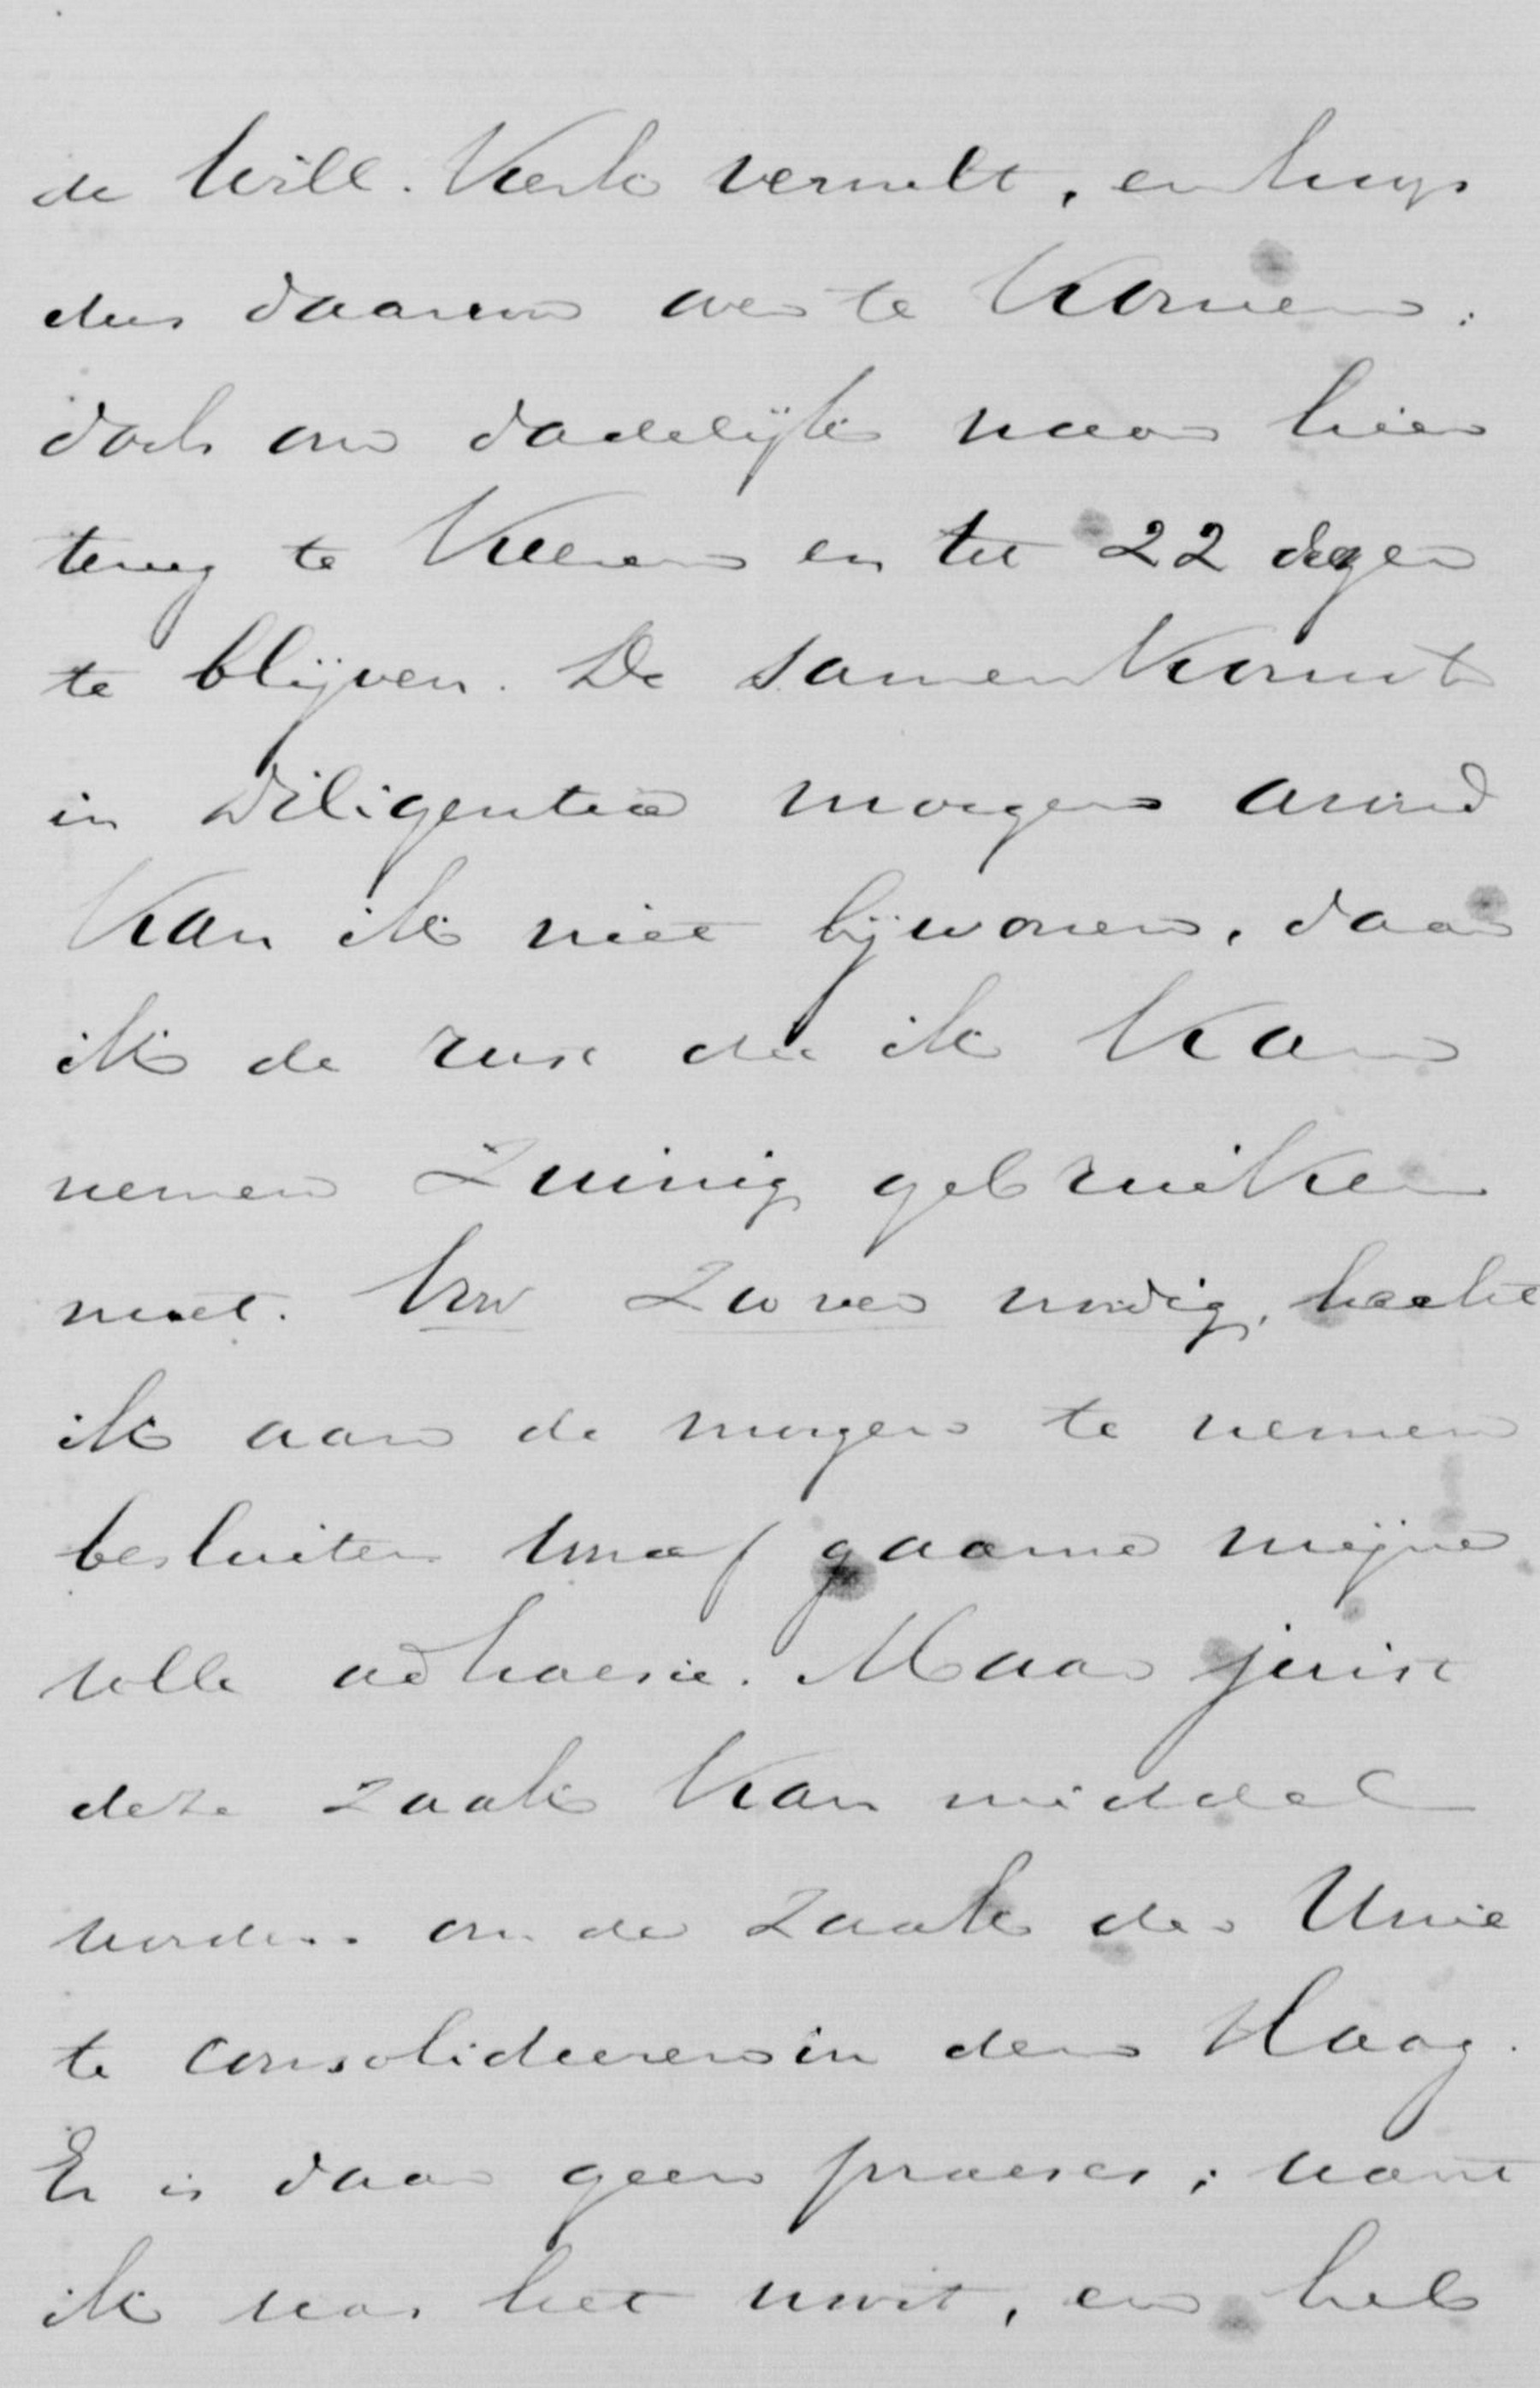 de Will. Kerk vervult, en hoop
dus daarvoor over te komen:
doch om dadelijk naar hier
terug te keeren en tot 22 dezer
te blijven. De samenkomst
in Diligentia morgen avond
kan ik niet bijwonen, daar
ik de rust die ik kan
nemen zuinig gebruiken
moet. Voor zoover noodig, hecht
ik aan de morgen te nemen
besluiten vooraf gaarne mijne
volle adhaesie. Maar juist
deze zaak kan middel
worden om de zaak der Unie
te consolideeren in den Haag.
Er is daar geen praeses; want
ik was het nooit, en heb